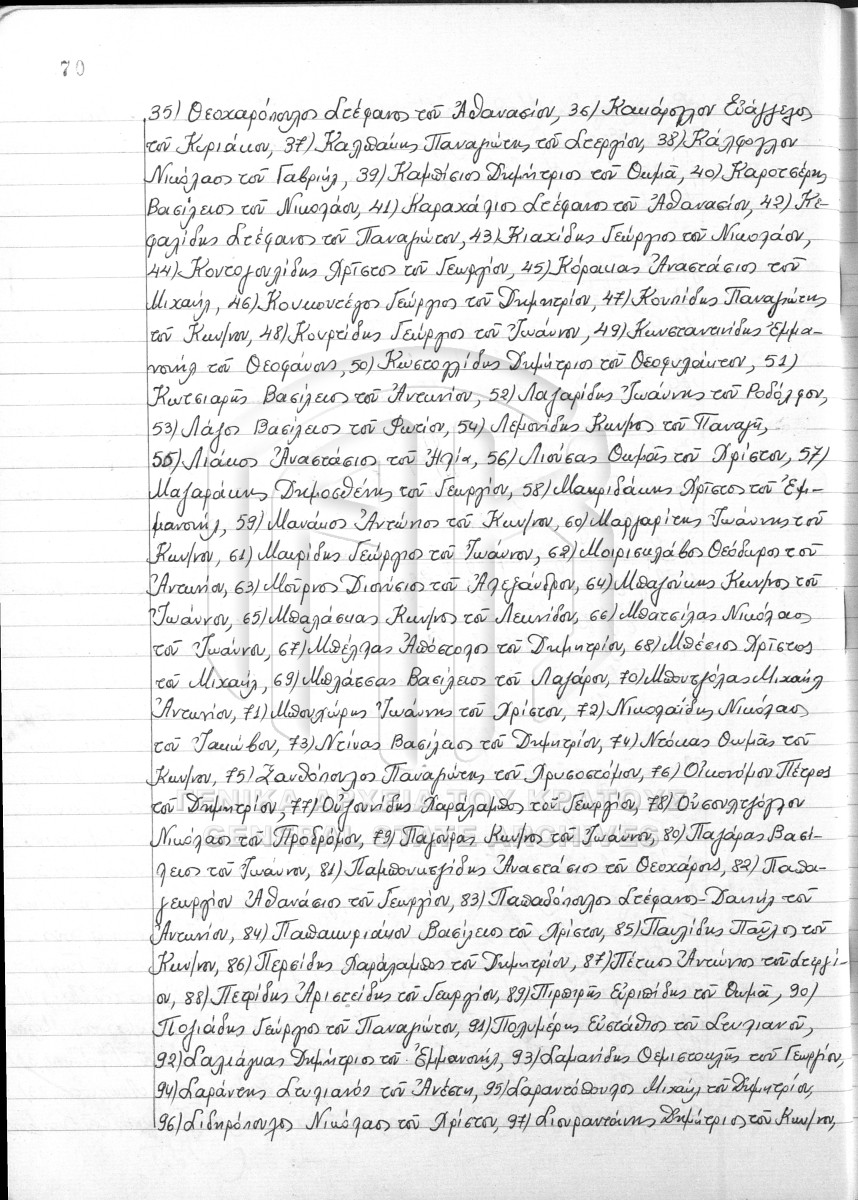 70
35) Θεοχαρόπουλος Στέφανος τοῦ Ἀθανασίου, 36) Κακάρογλου Εὐάγγελος
τοῦ Κυριάκου, 37) Καλπάκης Παναγιώτης τοῦ Στεργίου, 38) Κάλφογλου
Νικόλαος τοῦ Γαβριήλ, 39) Καμπίσιος Δημήτριος τοῦ Θωμᾶ, 40) Καροτσέρης
Βασίλειος τοῦ Νικολάου, 41) Καραχάλιος Στέφανος τοῦ Ἀθανασίου, 42) Κε-
φαλίδης Στέφανος τοῦ Παναγιώτου, 43) Κιαχίδης Γεώργιος τοῦ Νικολάου,
44) Κοντογουλίδης Χρῖστος τοῦ Γεωργίου, 45) Κόρακας Ἀναστάσιος τοῦ
Μιχαήλ, 46) Κουκουτέγος Γεώργιος τοῦ Δημητρίου, 47) Κουπίδης Παναγιώτης
τοῦ Κων/νου, 48) Κουρτίδης Γεώργιος τοῦ Ἰωάννου, 49) Κωνσταντινίδης Ἐμμα-
νουήλ τοῦ Θεοφάνους, 50) Κωστογλίδης Δημήτριος τοῦ Θεοφυλάκτου, 51)
Κωτσιαρῆς Βασίλειος τοῦ Ἀντωνίου, 52) Λαζαρίδης Ἰωάννης τοῦ Ροδόλφου,
53) Λάζος Βασίλειος τοῦ Φωτίου, 54) Λεμονίδης Κων/νος τοῦ Παναγῆ,
55) Λιάκος Ἀναστάσιος τοῦ Ἠλία, 56) Λιούσας Θωμᾶς τοῦ Χρίστου, 57)
Μαζαράκης Δημοσθένης τοῦ Γεωργίου, 58) Μακριδάκης Χρῖστος τοῦ Ἐμ-
μανουήλ, 59) Μανάκος Ἀντώνιος τοῦ Κων/νου, 60) Μαργαρίτης Ἰωάννης τοῦ
Κων/νου, 61) Μαυρίδης Γεώργιος τοῦ Ἰωάννου, 62) Μοιρισκλάβος Θεόδωρος τοῦ
Ἀντωνίου, 63) Μοῦρνος Διονύσιος τοῦ Ἀλεξάνδρου, 64) Μπαζούκης Κων/νος τοῦ
Ἰωάννου, 65) Μπαλάσκας Κων/νος τοῦ Λεωνίδου, 66) Μπατσίλας Νικόλαος
τοῦ Ἰωάννου, 67) Μπέλλας Ἀπόστολος τοῦ Δημητρίου, 68) Μπέσιος Χρῖστος
τοῦ Μιχαήλ, 69) Μπλάσσας Βασίλειος τοῦ Λαζάρου, 70) Μπουτζόλας Μιχαήλ
Ἀντωνίου, 71) Μπουχώρης Ἰωάννης τοῦ Χρίστου, 72) Νικολαΐδης Νικόλαος
τοῦ Ἰακώβου, 73) Ντίνας Βασίλειος τοῦ Δημητρίου, 74) Ντόκας Θωμᾶς τοῦ
Κων/νου, 75) Ξανθόπουλος Παναγιώτης τοῦ Χρυσοστόμου, 76) Οἰκονόμου Πέτρος
τοῦ Δημητρίου, 77) Οὐζουνίδης Χαράλαμπος τοῦ Γεωργίου, 78) Οὐσουλτζόγλου
Νικόλαος τοῦ Προδρόμου, 79) Παγούρας Κων/νος τοῦ Ἰωάννου, 80) Παζάρας Βασί-
λειος τοῦ Ἰωάννου, 81) Παμπουκτζίδης Ἀναστάσιος τοῦ Θεοχάρους, 82) Παπα-
γεωργίου Ἀθανάσιος τοῦ Γεωργίου, 83) Παπαδόπουλος Στέφανος-Δανιήλ τοῦ
Ἀντωνίου, 84) Παπακυριάκου Βασίλειος τοῦ Χρίστου, 85) Παυλίδης Παῦλος τοῦ
Κων/νου, 86) Περσίδης Χαράλαμπος τοῦ Δημητρίου, 87) Πέτκος Ἀντώνιος τοῦ Στεργί-
ου, 88) Πετρίδης Ἀριστείδης τοῦ Γεωργίου, 89) Πιρπιρῆς Εὐριπίδης τοῦ Θωμᾶ, 90)
Πολιάδης Γεώργιος τοῦ Παναγιώτου, 91) Πολυμέρης Εὐστάθιος τοῦ Στυλιανοῦ,
92) Σαλιάγκας Δημήτριος τοῦ Ἐμμανουήλ, 93) Σαμανίδης Θεμιστοκλῆς τοῦ Γεωργίου,
94) Σαράντης Στυλιανός τοῦ Ἀνέστη, 95) Σαραντόπουλος Μιχαήλ τοῦ Δημητρίου,
96) Σιδηρόπουλος Νικόλαος τοῦ Χρίστου, 97) Σιουραντάνης Δημήτριος τοῦ Κων/νου,
ΓΕΝΙΚΑ ΑΡΧΕΙΑ ΤΟΥ ΚΡΑΤΟΥΣ
GENERAL STATE ARCHIVES